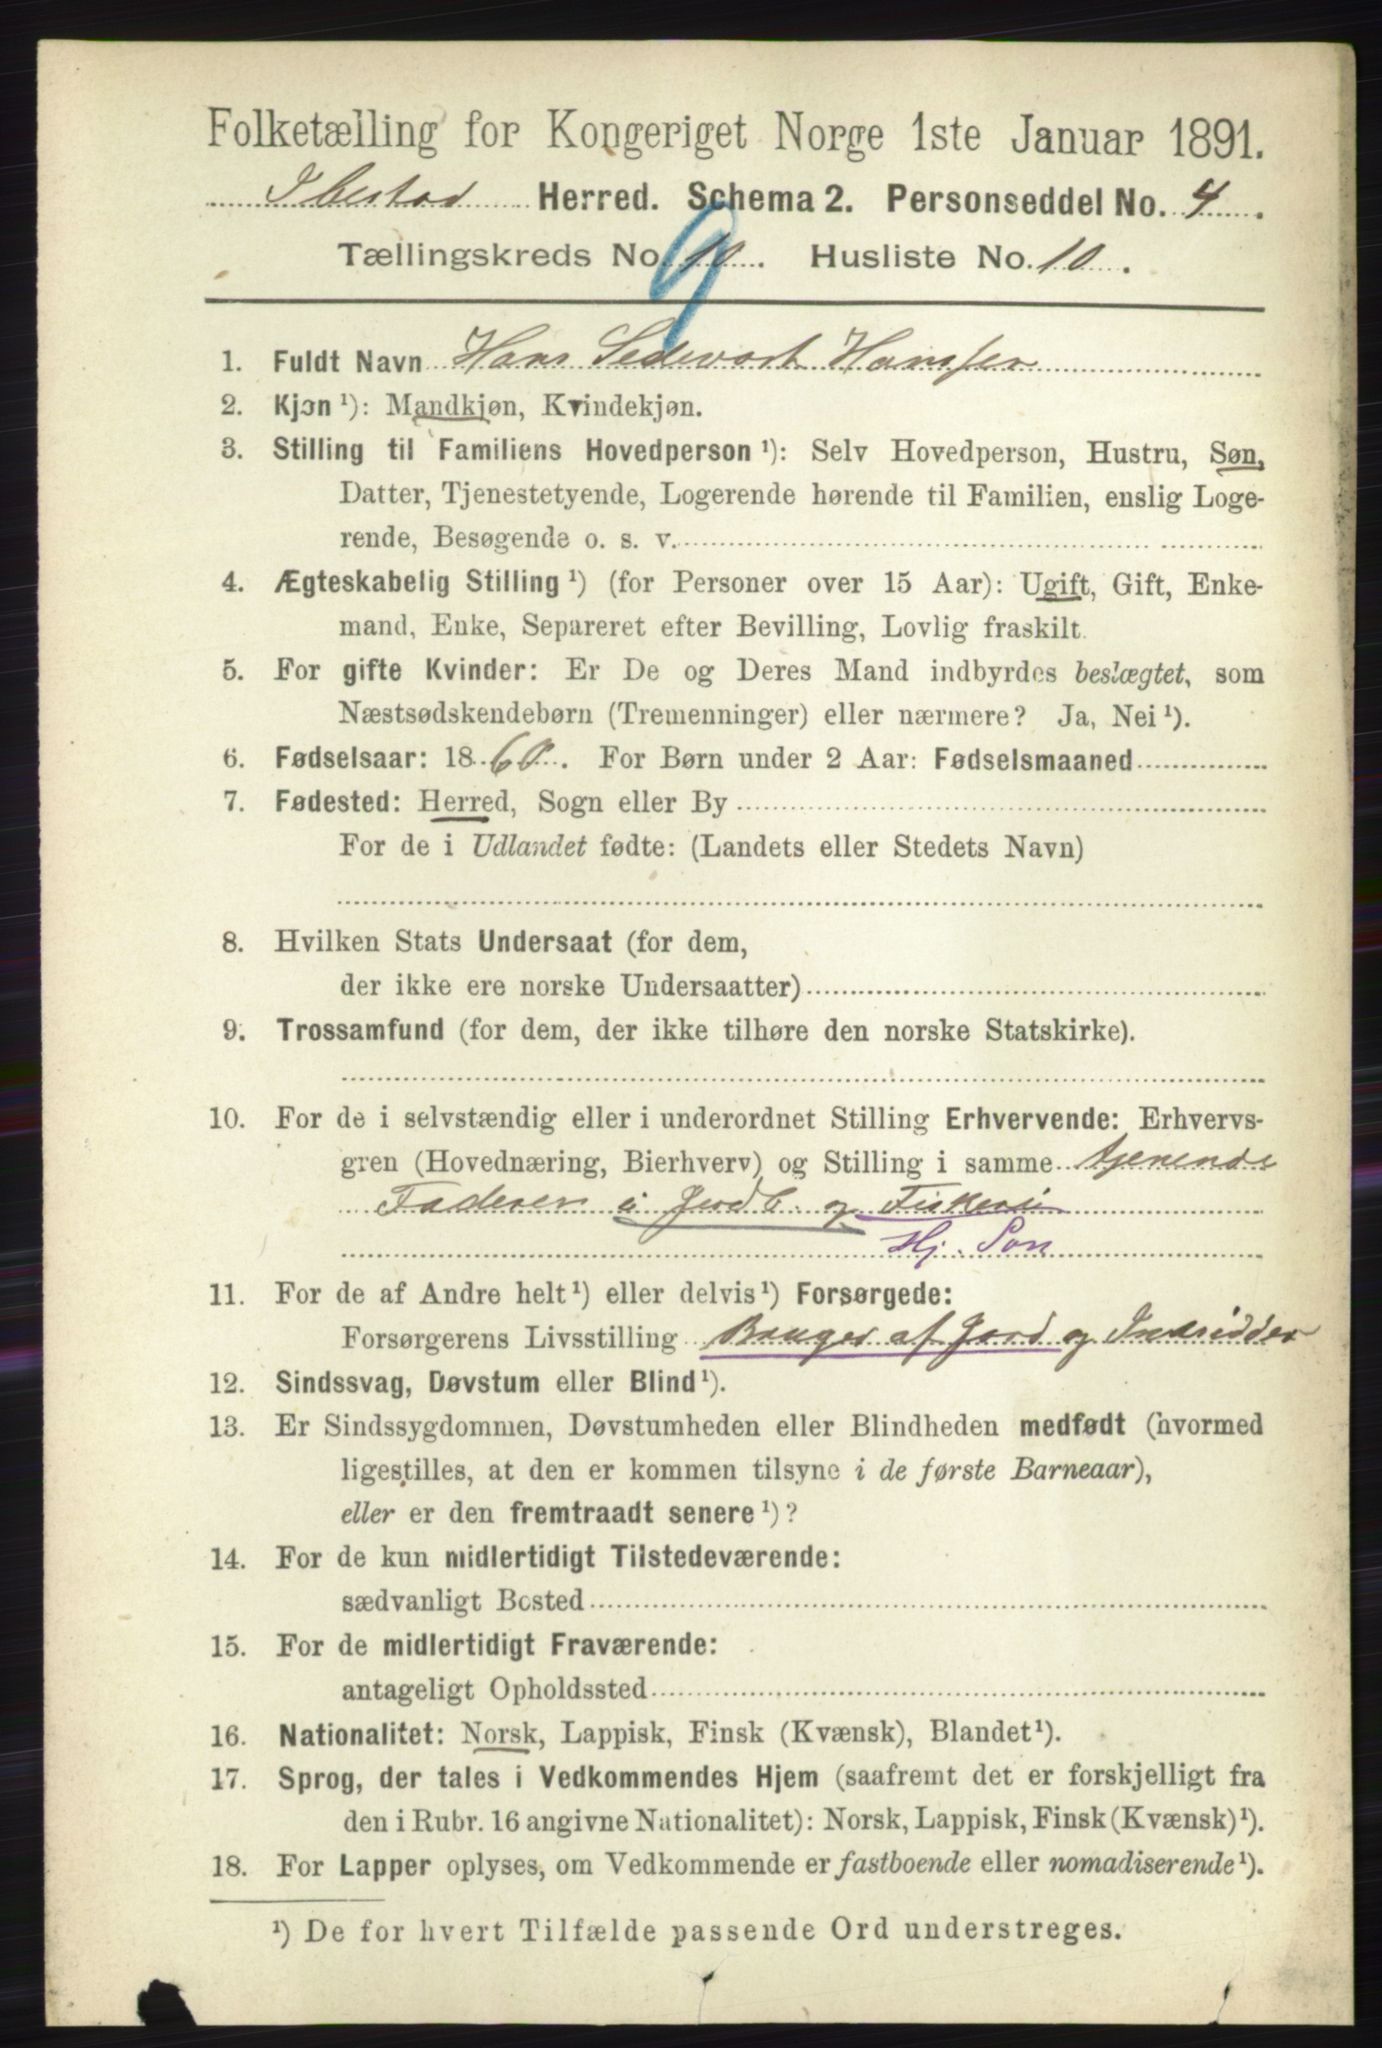 Folketælling for Kongeriget Norge 1ste Januar 1891.
Ibestad Herred. Schema 2. Personseddel No. 4.
Tællingskreds No. 10. Husliste No. 10.
9
1. Fuldt Navn Hans Sedevart Hansen
2. Kjøn ¹): Mandkjøn, Kvindekjøn.
3. Stilling til Familiens Hovedperson ¹): Selv Hovedperson, Hustru, Søn,
Datter, Tjenestetyende, Logerende hørende til Familien, enslig Loge-
rende, Besøgende o. s. v.
4. Ægteskabelig Stilling ¹) (for Personer over 15 Aar): Ugift, Gift, Enke-
mand, Enke, Separeret efter Bevilling, Lovlig fraskilt.
5. For gifte Kvinder: Er De og Deres Mand indbyrdes beslægtet, som
Næstsødskendebørn (Tremenninger) eller nærmere? Ja, Nei ¹).
6. Fødselsaar: 1860. For Børn under 2 Aar: Fødselsmaaned
7. Fødested: Herred, Sogn eller By
For de i Udlandet fødte: (Landets eller Stedets Navn)
8. Hvilken Stats Undersaat (for dem,
der ikke ere norske Undersaatter)
9. Trossamfund (for dem, der ikke tilhøre den norske Statskirke).
10. For de i selvstændig eller i underordnet Stilling Erhvervende: Erhvervs-
gren (Hovednæring, Bierhverv) og Stilling i samme tjenende
Faderen i Jordb. og Fiskeri
Hj. Søn
11. For de af Andre helt ¹) eller delvis ¹) Forsørgede:
Forsørgerens Livsstilling Bruger af Jord og Indridder
12. Sindssvag, Døvstum eller Blind ¹).
13. Er Sindssygdommen, Døvstumheden eller Blindheden medfødt (hvormed
ligestilles, at den er kommen tilsyne i de første Barneaar),
eller er den fremtraadt senere ¹)?
14. For de kun midlertidigt Tilstedeværende:
sædvanligt Bosted
15. For de midlertidigt Fraværende:
antageligt Opholdssted
16. Nationalitet: Norsk, Lappisk, Finsk (Kvænsk), Blandet ¹).
17. Sprog, der tales i Vedkommendes Hjem (saafremt det er forskjelligt fra
den i Rubr. 16 angivne Nationalitet): Norsk, Lappisk, Finsk (Kvænsk) ¹).
18. For Lapper oplyses, om Vedkommende er fastboende eller nomadiserende ¹).
¹) De for hvert Tilfælde passende Ord understreges.